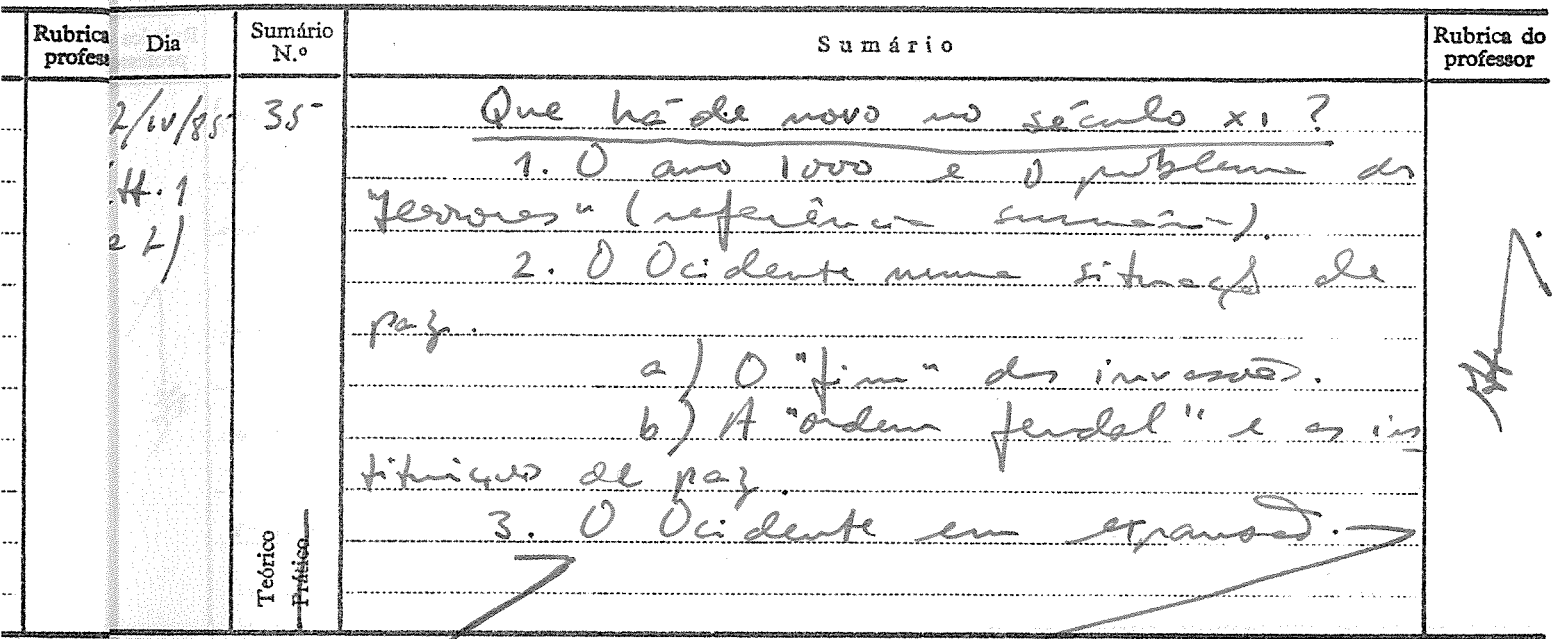 Rubrica
profess
Dia
Sumário
N.º
Sumário
Rubrica do
professor
2/IV/85
35
Que há de novo no século XI?
1. O ano 1000 e o problema dos
"terrores" (referência sumária).
2. O Ocidente numa situação de
paz.
a) O "fim" das invasões.
b) A "ordem feudal" e as ins
tituições de paz.
3. O Ocidente em expansão.
e 2)
Teórico
Prático